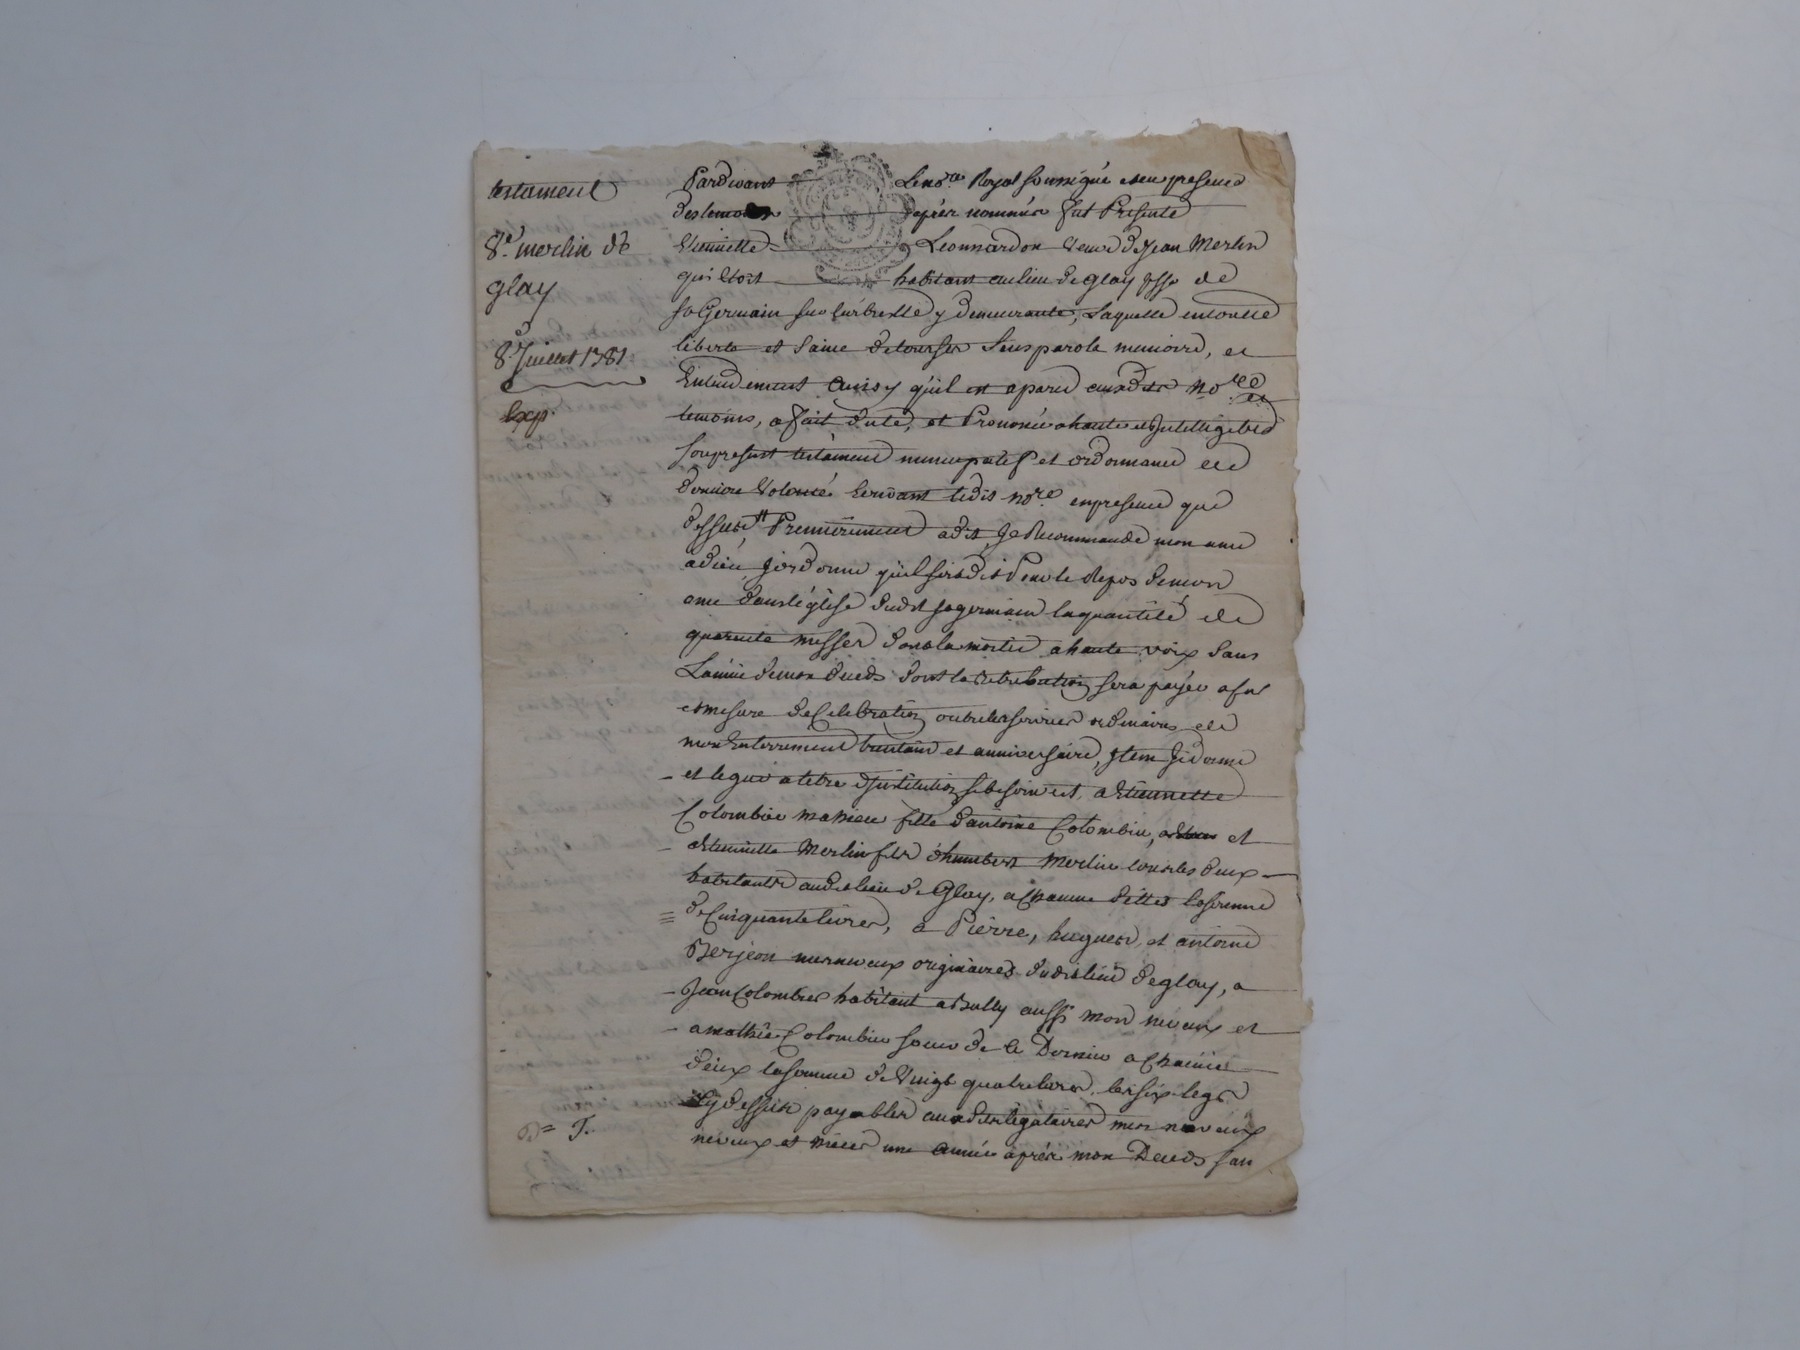 testament
Ve. merlin de
glay
8e. Juillet 1781
Exp.
Pardevant Le nore. Royal soussigné et en presence
des temoins après nommés fut Presente
Etiennette Leonnardon Veuve de Jean Merlin
qui étoit habitant au lieu de glay psse de
st Germain sur l'arbresle y demeurante, Laquelle en toutte
liberté et saine de tous ses sens parole memoire, et
Entendement ainsy qu'il en aparu auxdits nore. et
temoins, a fait dicté, et Prononcé a haute et Intelligible
son present testament nuncupatif et ordonnance de
derniere Volonté Ecrivant ledit nore. en presence que
dessus, Premierement a dit Je Recommande mon ame
a dieu Jordonne qu'il soit dit Pour le Repos de mon
ame dans léglise dudit st germain la quantité de
quarante messes dont la moitié a haute voix dans
L'année de mon deceds dont la retribution sera payée a fur
et mesure de Celebration outre les services ordinaires de
mon Enterrement trentain et anniversaire, Item Je donne
et legue a titre d'institution si besoin est, a Etiennette
Colombier ma niece fille d'antoine Colombier, et
a Etiennette Merlin fille d'humbert Merlin toutes deux
habitantes audit lieu de Glay, a Chacune d'elles la somme
de Cinquante livres, a Pierre, hugues, et antoine
Berjeon mes neveux originaires dudit lieu de glay, a
Jean Colombier habitant a Bully aussi mon neveux et
a mathie Colombier soeur de Ce Dernier a Chacun
d'eux la somme de Vingt quatre livres, les six legs
Cy dessus payables auxdits légataires mes neveux
neveux et nieces une année après mon Deceds san
Dre. T.